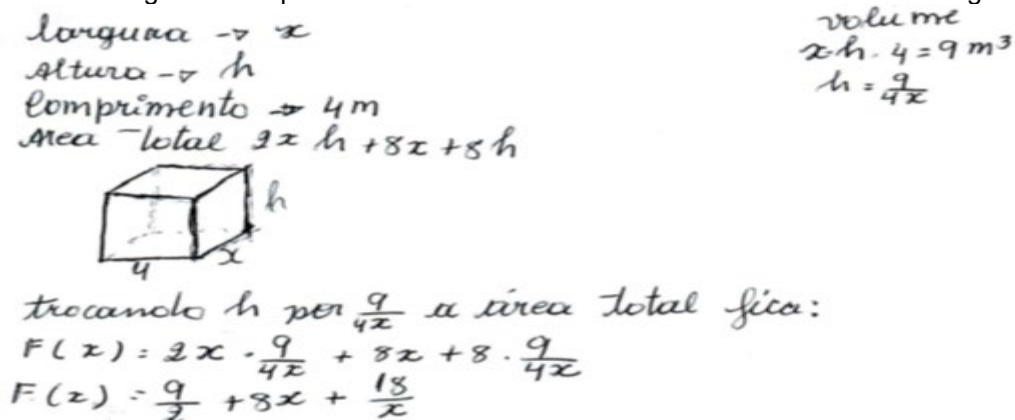 largura -> x
Altura -> h
Comprimento -> 4m
Area Total 2x h + 8x + 8h
volume
x.h.4 = 9 m³
h = 9/4x
h
4
x
trocando h por 9/4x a área total fica:
F(x) = 2x . 9/4x + 8x + 8 . 9/4x
F(x) = 9/2 + 8x + 18/x